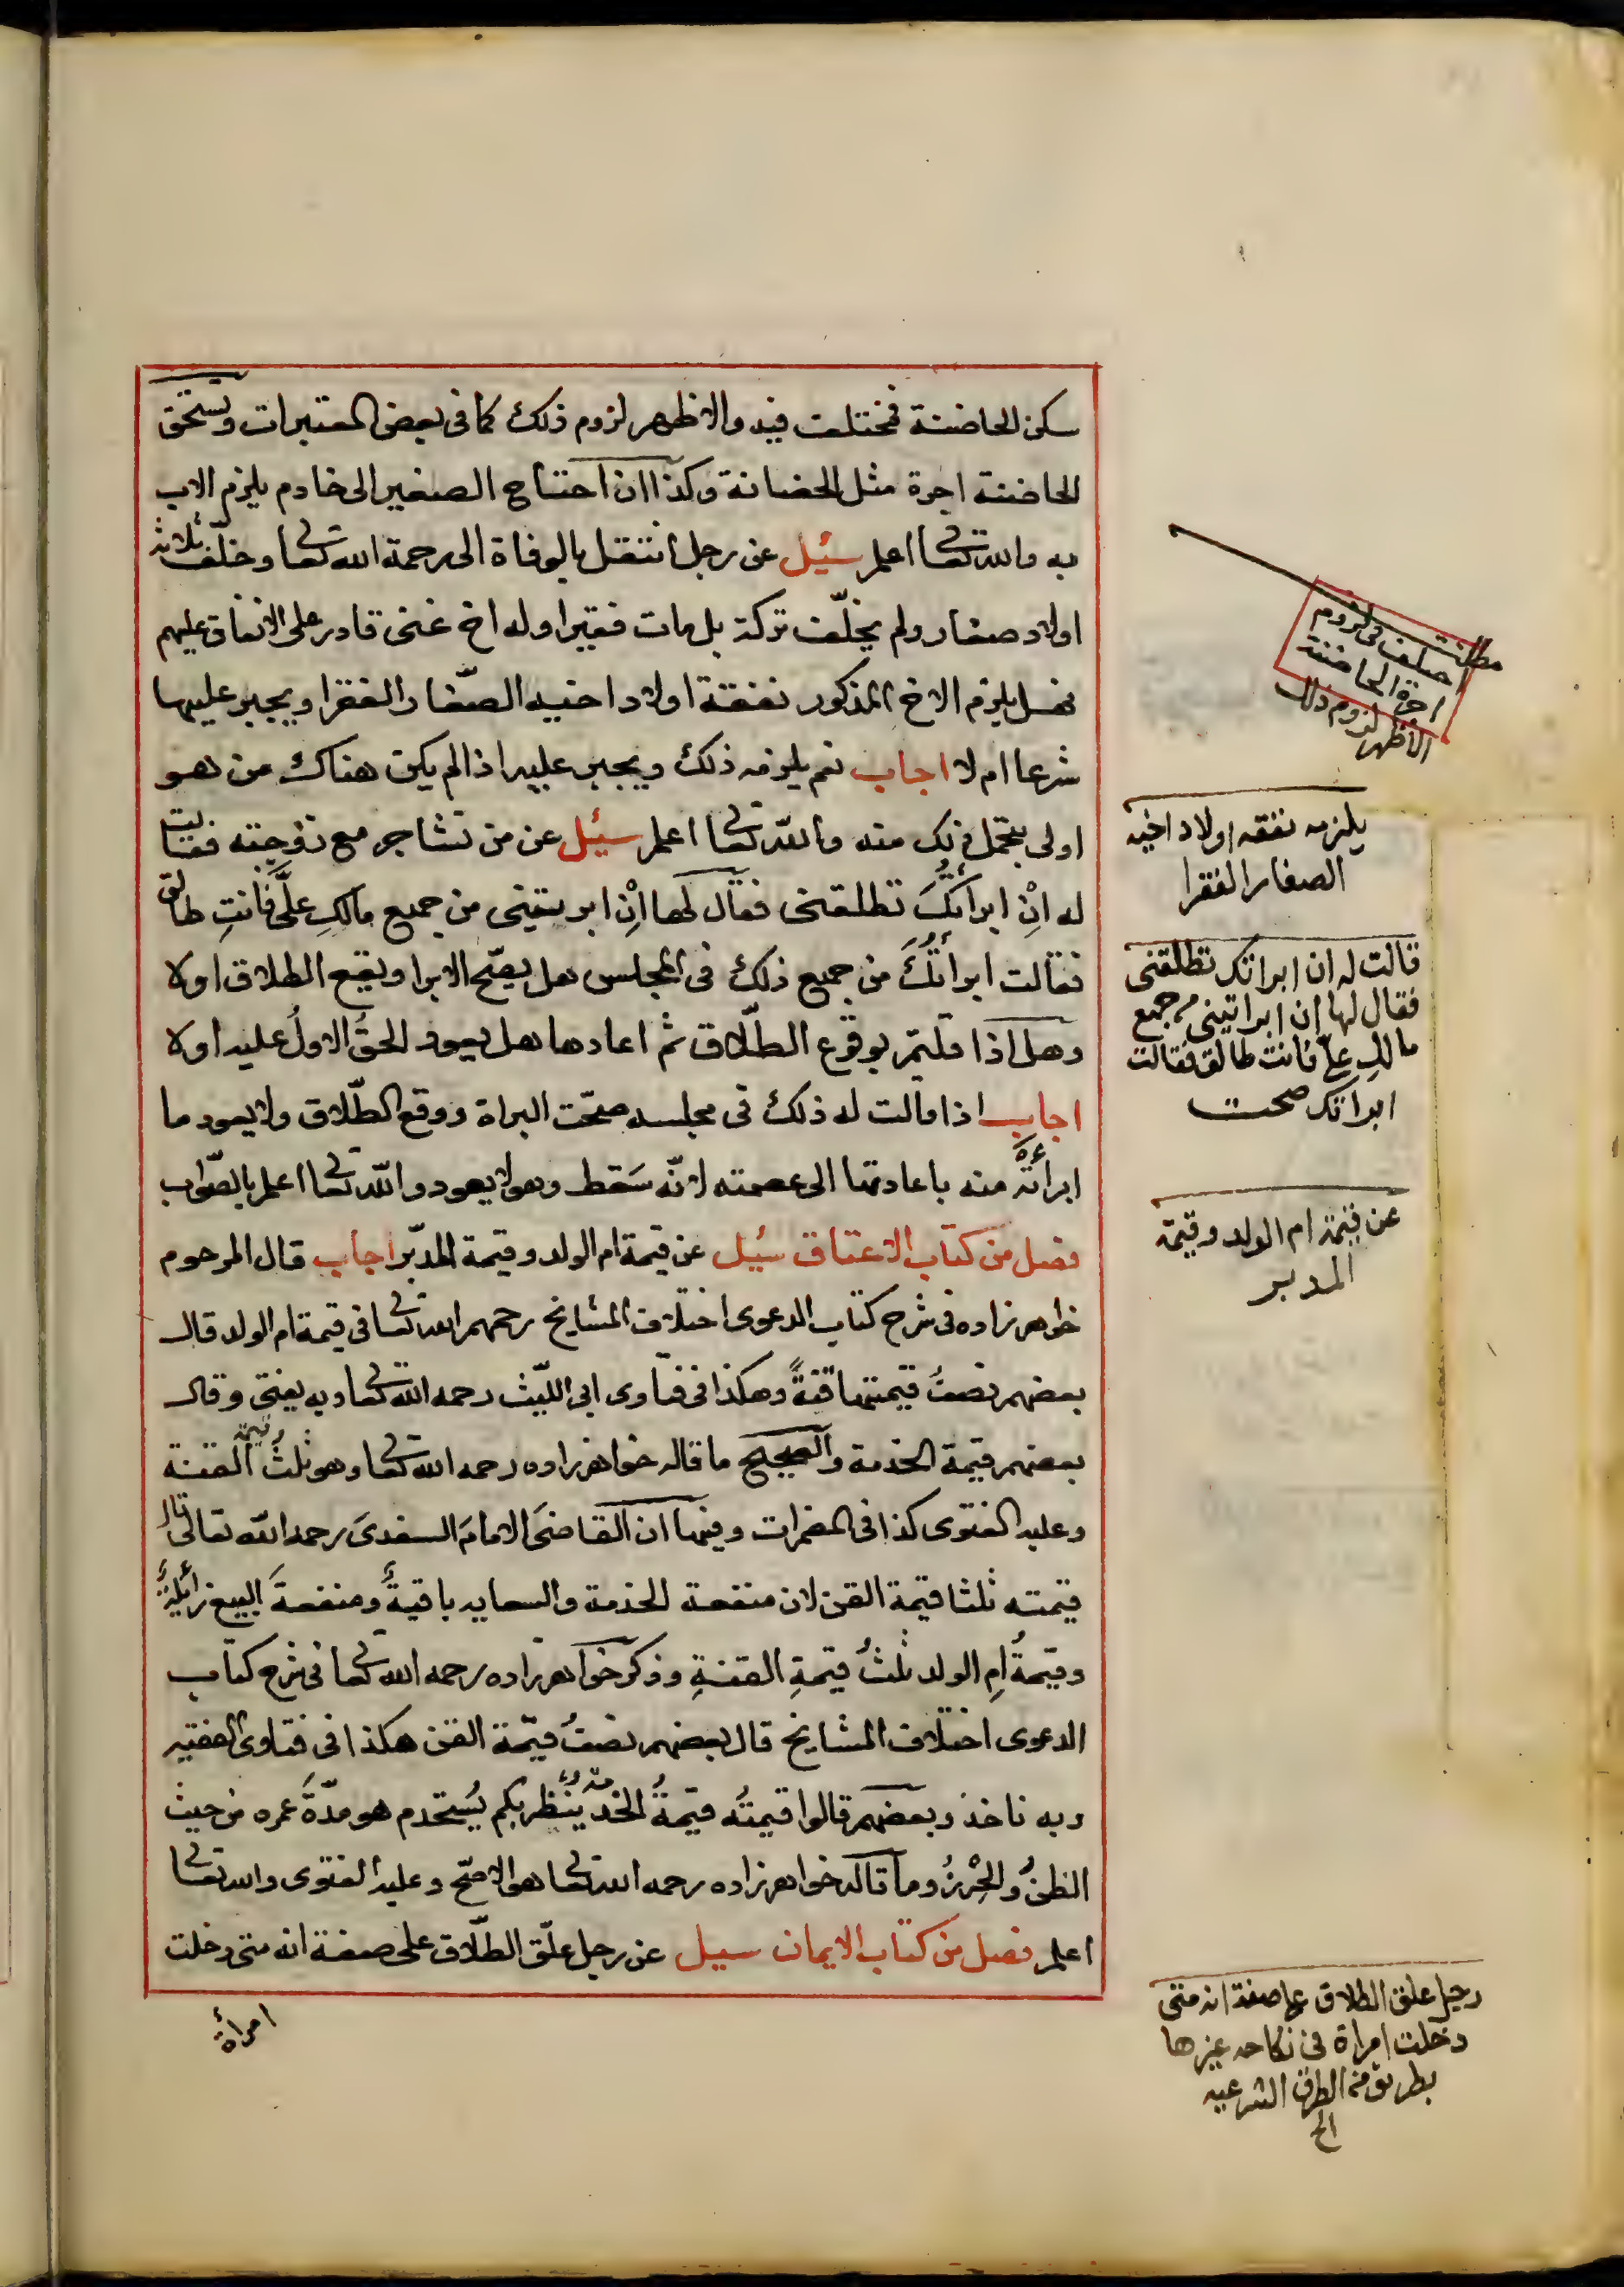 سكن الحاضنة فمختلف فيه والاظهر لزوم ذلك كما فى بعض المعتبرات وتستحق
الحاضنة اجرة مثل الحضانة وكذا ان احتاج الصغير الى خادم يلزم الاب
به والله تعالى اعلم سئيل عن رجل انتقل بالوفاة الى رحمة الله تعالى وخلّف ثلاثة
اولاد صغار ولم يخلّف تركة بل مات فقيرا وله اخ غنى قادر على الانفاق عليهم
فهل يلزم الاخ المذكور نفقة اولاد اخيه الصّغار الفقرا ويجبر عليها
شرعا ام لا اجاب نعم يلزمه ذلك ويجبر عليه اذا لم يكن هناك من هو
اولى بتحمل ذلك منه والله تعالى اعلم سئيل عن من تشاجر مع زوجته فقالت
له اِنْ ابراتُكَ تطلقنى فقال لها اِنْ ابريتينى من جميع مالكِ علَىَّ فانتِ طالق
فقالت ابرأتُكَ من جميع ذلك فى المجلس هل يصّح الابرا ويقع الطلاق اولا
وهل اذا قلتم بوقوع الطلّاق ثم اعادها هل يعود الحقُ الاولُ عليه اولا
اجاب اذا قالت له ذلك فى مجلسه صحّت البراة ووقع الطّلاق ولا يعود ما
ابرأته منه باعادتها الى عصمته لانّه سَقط وهو لا يعود والله تعالى اعلم بالصّواب
فصل من كتاب الاعتاق سئيل عن قيمة ام الولد وقيمة المدبّر اجاب قال المرحوم
خواهر زاده فى شرح كتاب الدعوى اختلاف المشايخ رحمهم الله تعالى فى قيمة ام الولد قال
بعضهم نصفُ قيمتها قنةً وهكذا فى فتاوى ابى اللّيث رحمه الله تعالى وبه يفتى وقال
بعضهم قيمة الخدمة والصحيح ما قاله خواهر زاده رحمه الله تعالى وهو ثلث قيمة القنة
وعليه الفتوى كذا فى المضمرات وفيها ان القاضىَ الامامَ السغدىَ رحمه الله تعالى قال
قيمته ثلثا قيمة القن لان منفعة الخدمة والسعايه باقيةٌ ومنفعةَ البيع زائلةٌ
وقيمةُ امِ الولد ثلثُ قيمةِ القنةِ وذكر خواهر زاده رحمه الله تعالى فى شرح كتاب
الدعوى اختلاف المشايخ قال بعضهم نصفُ قيمّة القن هكذا فى فتاوى الفقيه
وبه ناخذ وبعضهم قالوا قيمتُه قيمةُ الخدمة يُنظر بكم يُستخدم هو مدّةَ عمره من حيث
الظنُ والحِرْزُ وما قاله خواهر زاده رحمه الله تعالى هو الاصّح وعليه الفتوى والله تعالى
اعلم فصل من كتاب الايمان سيل عن رجل علّق الطلّاق على صفة انه متى دخلت
امرأة
مطلب
اختلف فى لزوم
اجرة الحاضنة
الاظهر لزوم ذلك
يلزمه نفقه اولاد اخيه
الصغار الفقرا
قالت له ان ابراتك تطلقنى
فقال لها ان ابراتينى من جميع
مالك علىّ فانت طالق فقالت
ابراتك صحت
عن قيمة ام الولد وقيمة
المدبر
رجل علق الطلاق على صفة انه متى
دخلت امراة فى نكاحه غيرها
بطريق من الطرق الشرعيه
الخ